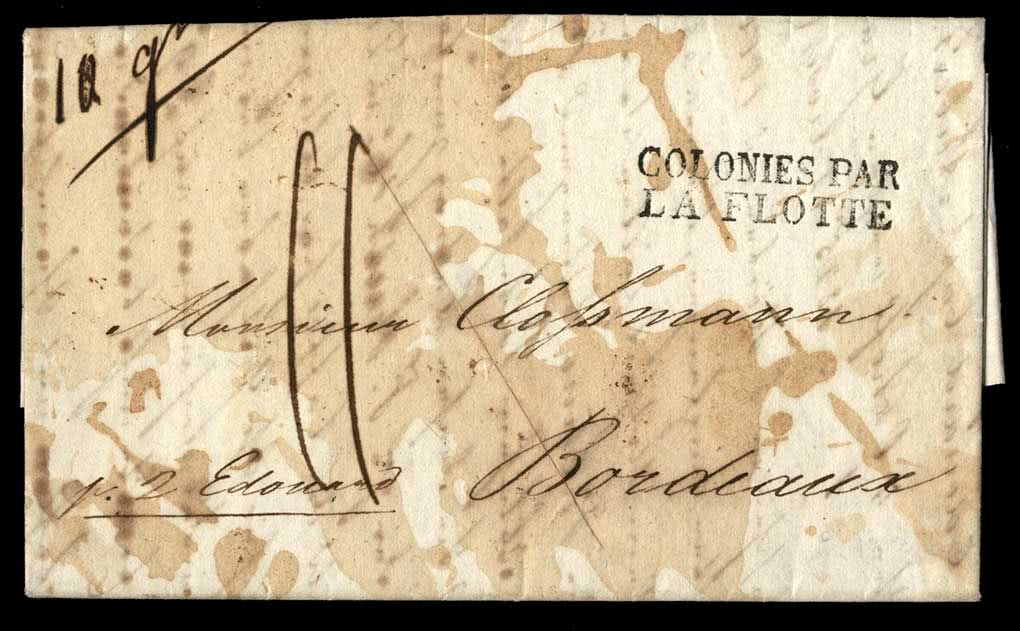 10 gr
COLONIES PAR
LA FLOTTE
11
Monsieur Cloßmann
p. 2 Edouard
Bordeaux